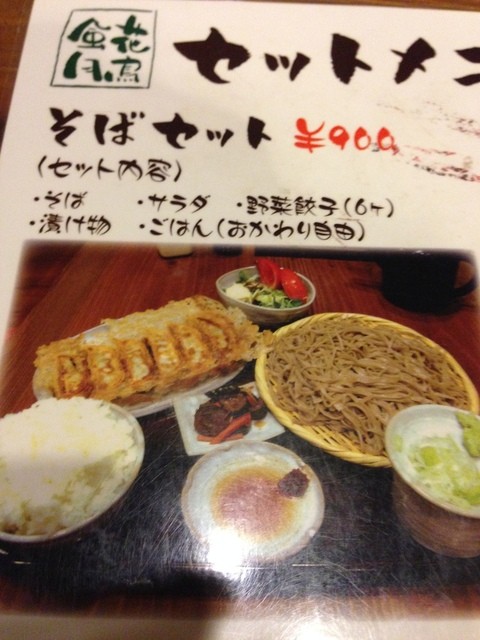 花鳥風月
セットメニ
そばセット ¥900
(セット内容)
・そば ・サラダ ・野菜餃子(6ヶ)
・漬け物 ・ごはん(おかわり自由)